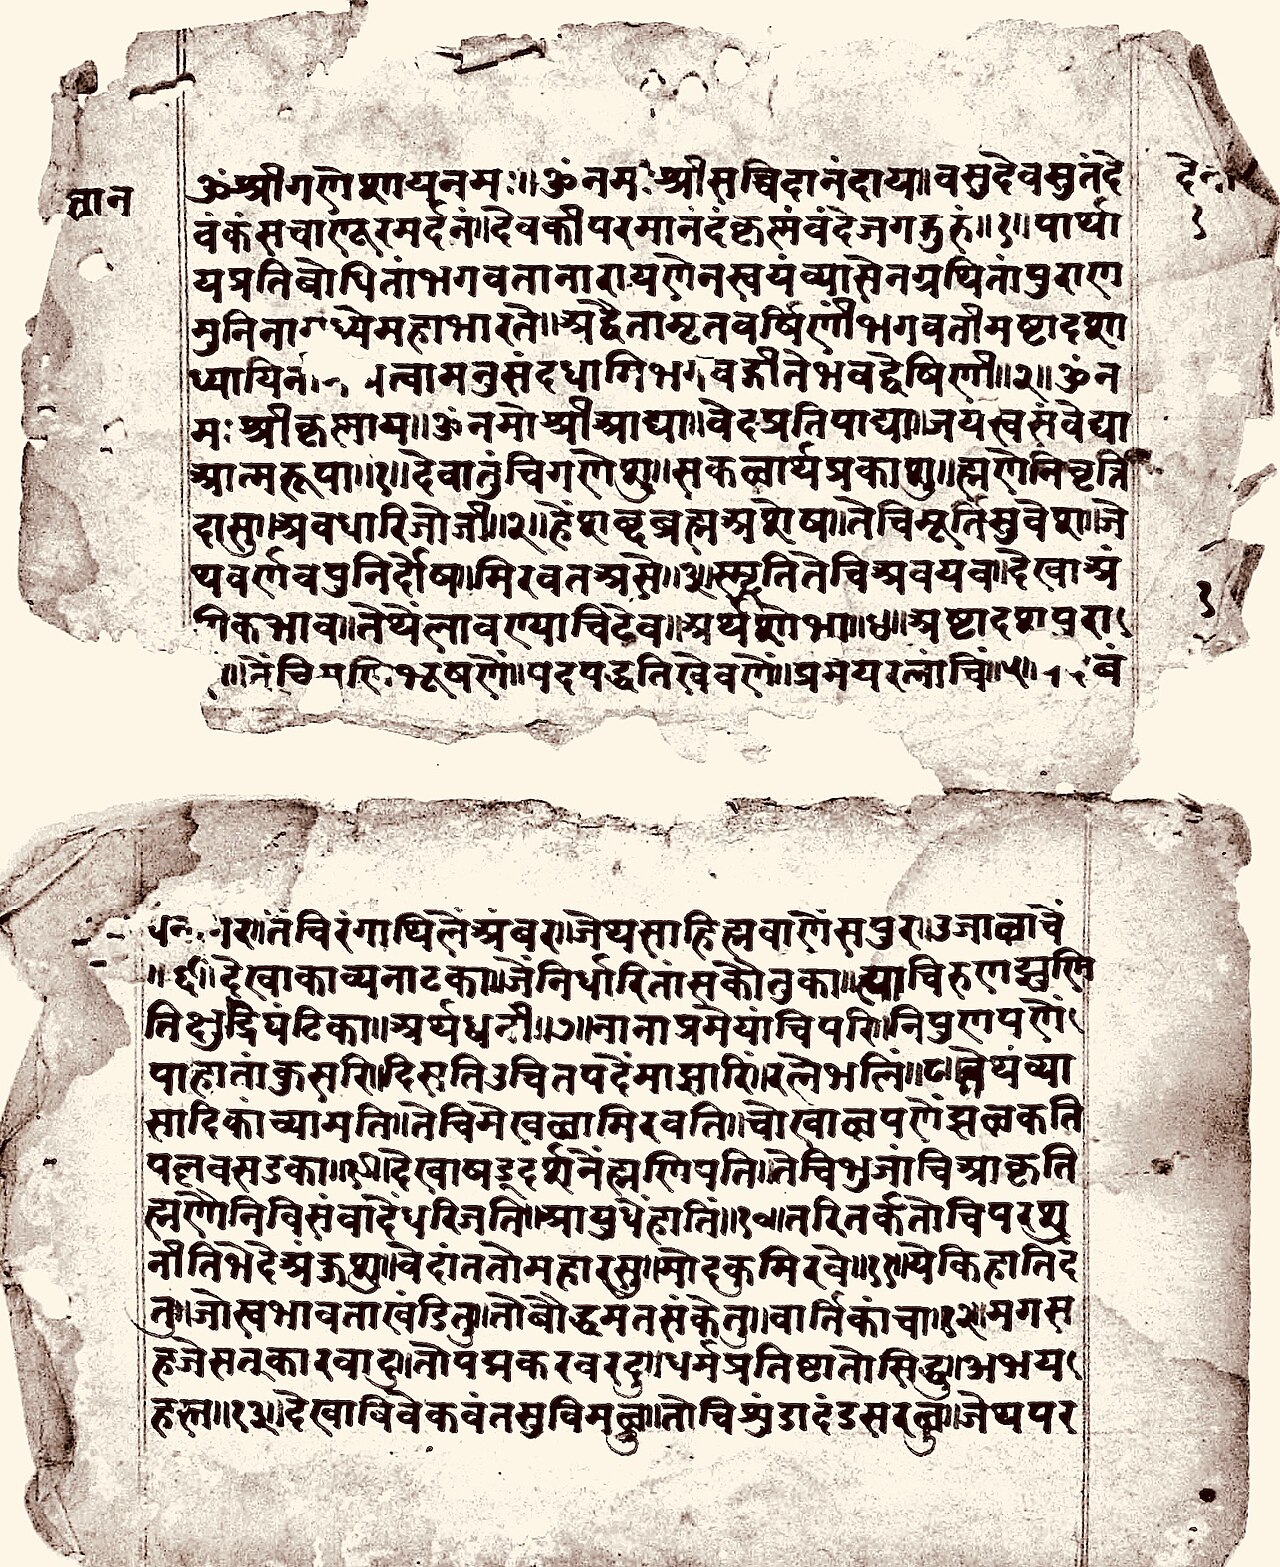 ॐश्रीगणेशायनमः॥ॐनमःश्रीसच्चिदानंदाय॥वसुदेवसुतंदे
ज्ञान
वंकंसचाणूरमर्दनं॥देवकीपरमानंदंकृष्णंवंदेजगद्गुरुं॥१॥पार्था
यप्रतिबोधितांभगवतानारायणेनस्वयंव्यासेनग्रथितांपुराण
मुनिनामध्येमहाभारते॥अद्वैतामृतवर्षिणींभगवतीमष्टादशा
ध्यायिनीं त्वामनुसंदधामिभगवद्गीतेभवद्वेषिणीं॥२॥ॐन
मःश्रीकृष्णाय॥ॐनमोश्रीआद्या॥वेदप्रतिपाद्या॥जयस्वसंवेद्या
आत्मरूपा॥१॥देवातुंचिगणेशु॥सकळार्थप्रकाशु॥ह्मणेनिवृत्ति
दासु॥अवधारिजोजी॥२॥हेंशब्दब्रह्मअशेष॥तेचिमूर्तिसुवेश॥जे
थवर्णवपुनिर्दोष॥मिरवतअसे॥३॥स्मृतितेचिअवयव॥देखाअं
गिकभाव॥तेथेंलावण्याचिठेव॥अर्थशोभा॥४॥अष्टादशपुरा
॥तेंचि भूषणें॥पदपद्धतिखेवणें॥प्रमेयरत्नांचिं॥५॥ बं
तेंचिरंगाथिलेंअंबर॥जेथसाहित्मवाणेंसपुर॥उजाळाचें
॥६॥देखाकाव्यनाटका॥जेंनिर्धारितांसकौतुका॥त्याचिरुणझुणि
तिक्षुद्रघंटिका॥अर्थध्वनी॥७॥नानाप्रमेयांचिपरि॥निपुणपणें
पाहातांकुसरि॥दिसतिउचितपदेंमाझारिं॥रत्नेंभलिं॥८॥तेथंव्या
सादिकांच्यामति॥तेचिमेखळामिरवति॥चोखाळपणेंझळकति
पलवसडका॥९॥देखाषड्दर्शनेंह्मणिपति॥तेचिभुजांचिआकृति
ह्मणोनिविसंवादेंधरिजति॥आयुधेंहातिं॥१०॥तरितर्कतोचिपरशु
नीतिभेदेअङ्कुशु॥वेदांततोमहारसु॥मोदकुमिरवे॥११॥येकिहातिदं
तु॥जोस्वभावताखंडितु॥तोबौद्धमतसंकेतु॥वार्तिकांचा॥१२॥मगस
हजेसत्कारवादु॥तोपद्मकरवरदु॥धर्मप्रतिष्टातोसिद्धु॥अभय
हस्त॥१३॥देखाविवेकवंतसुविमळु॥तोचिशुंडादंडसरळु॥जेथपर